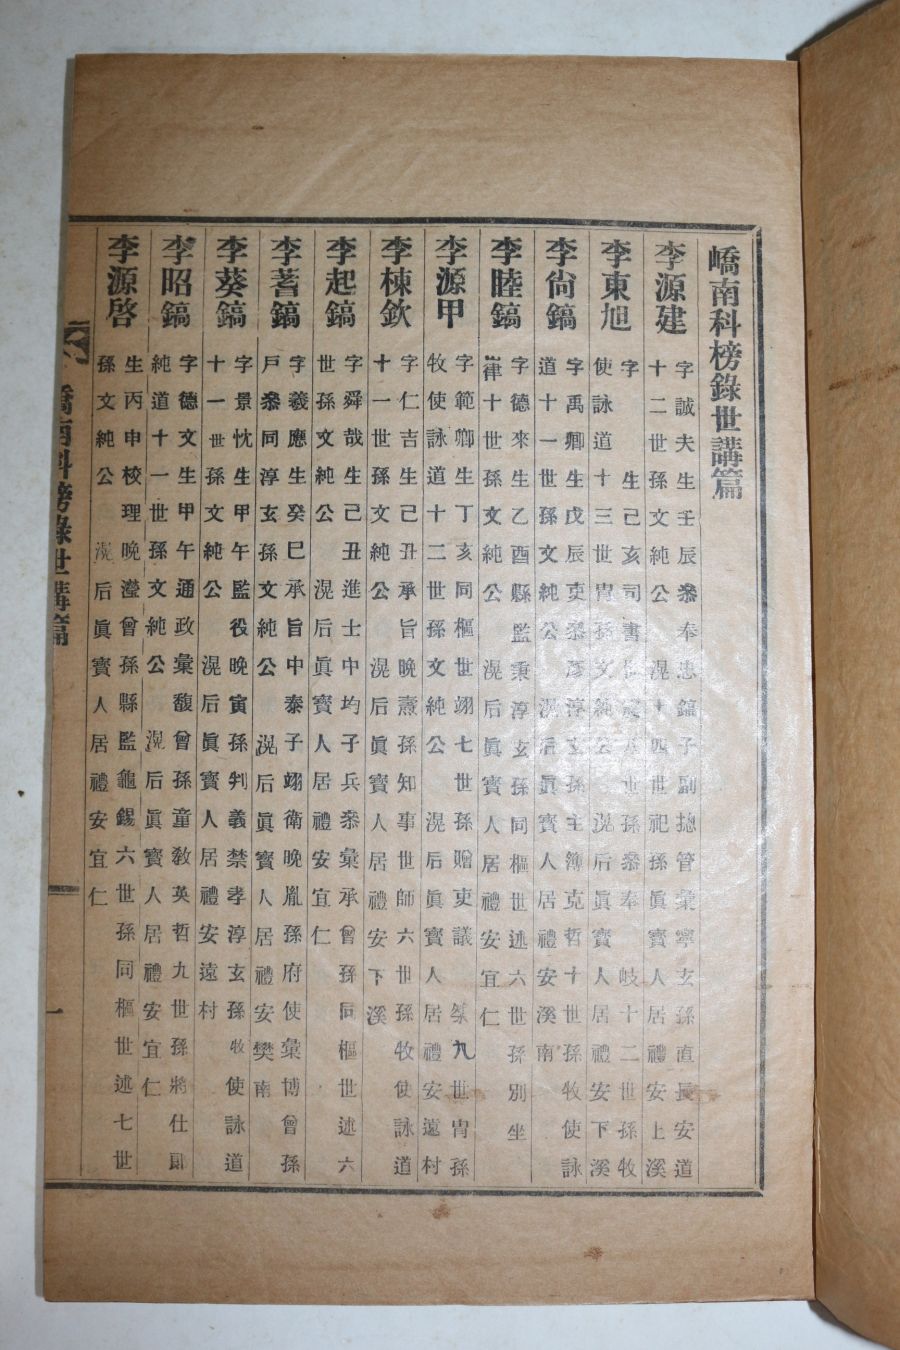 嶠南科榜錄世講篇
李源建
字誠夫生壬辰參奉忠鎬子副摠管彙寧玄孫直長安道
十二世孫文純公滉十四世祀孫眞寶人居禮安上溪
李東旭
字 詠生己亥司書 世孫參奉岐十二世孫牧
使詠道十三世胄孫文純公滉后眞寶人居禮安下溪
李尙鎬
字禹卿生戊辰吏參彦淳玄孫主簿克哲十世孫牧使詠
道十一世孫文純公滉后眞寶人居禮安溪南
李睦鎬
字德來生乙酉縣監秉淳玄孫同樞世述六世孫別坐
嵂十世孫文純公滉后眞寶人居禮安宜仁
李源甲
字範卿生丁亥同樞世翊七世孫贈吏議 九世胄孫
牧使詠道十二世孫文純公滉后眞寶人居禮安遠村
李棟欽
字仁吉生己丑承旨晩燾孫知事世師六世孫牧使詠道
十一世孫文純公滉后眞寶人居禮安下溪
李起鎬
字舜哉生己丑進士中均子兵參彙承曾孫同樞世述六
世孫文純公滉后眞寶人居禮安宜仁
李蓍鎬
字羲應生癸巳承旨中泰子翊衛晩胤孫府使彙博曾孫
戶參同淳玄孫文純公滉后眞寶人居禮安樊南
李葵鎬
字景忱生甲午監役晩寅孫判義禁孝淳玄孫牧使詠道
十一世孫文純公滉后眞寶人居禮安遠村
李昭鎬
字德文生甲午通政彙馥曾孫童敎英哲九世孫將仕郞
純道十一世孫文純公滉后眞寶人居禮安宜仁
李源啓
生丙申校理晩瀅曾孫縣監龜錫六世孫同樞世述七世
孫文純公滉后眞寶人居禮安宜仁
嶠南科榜錄世講篇
一